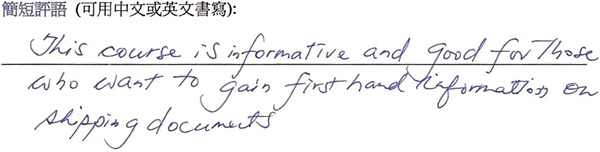 簡短評語 (可用中文或英文書寫):
This course is informative and good for Those
who want to gain firsthand information on
shipping documents